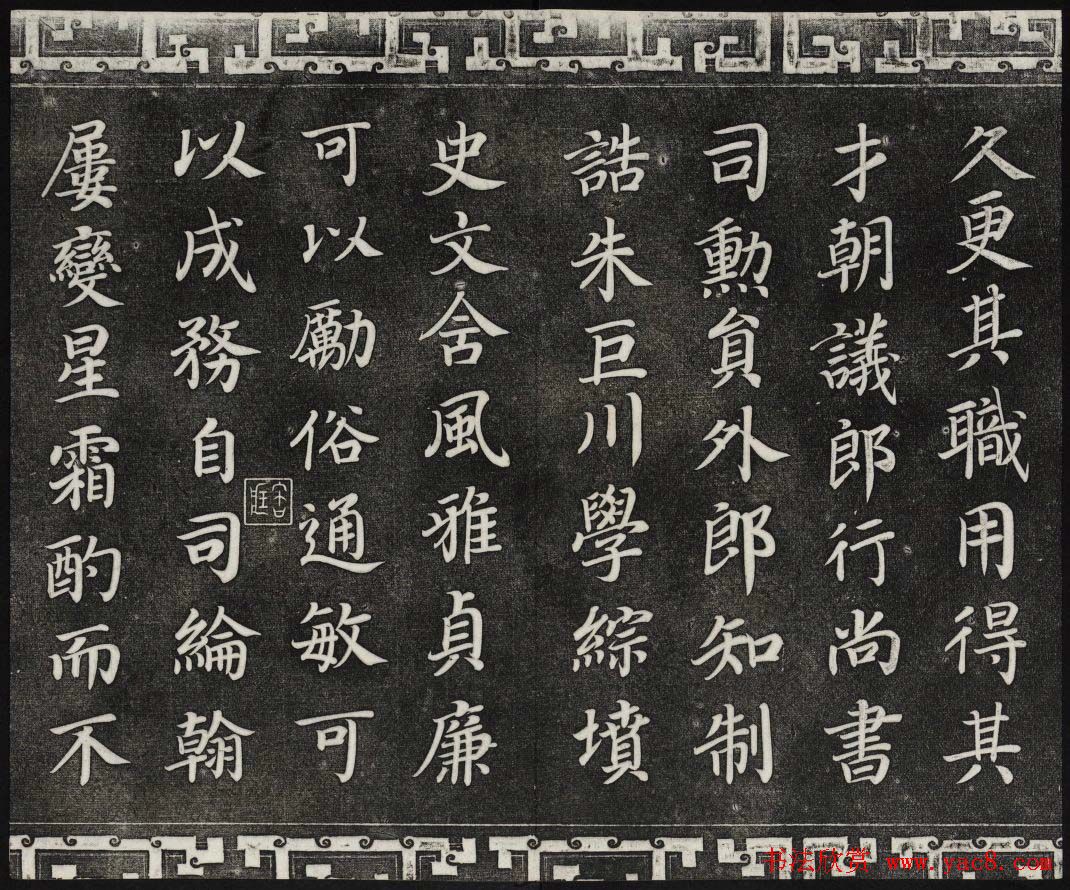 久更其職用得其
才朝議郎行尚書
司勲貟外郎知制
誥朱巨川學綜墳
史文舍風雅貞廉
可以勵俗通敏可
以成務自司綸翰
屢變星霜酌而不
书法欣赏 www.yac8.com